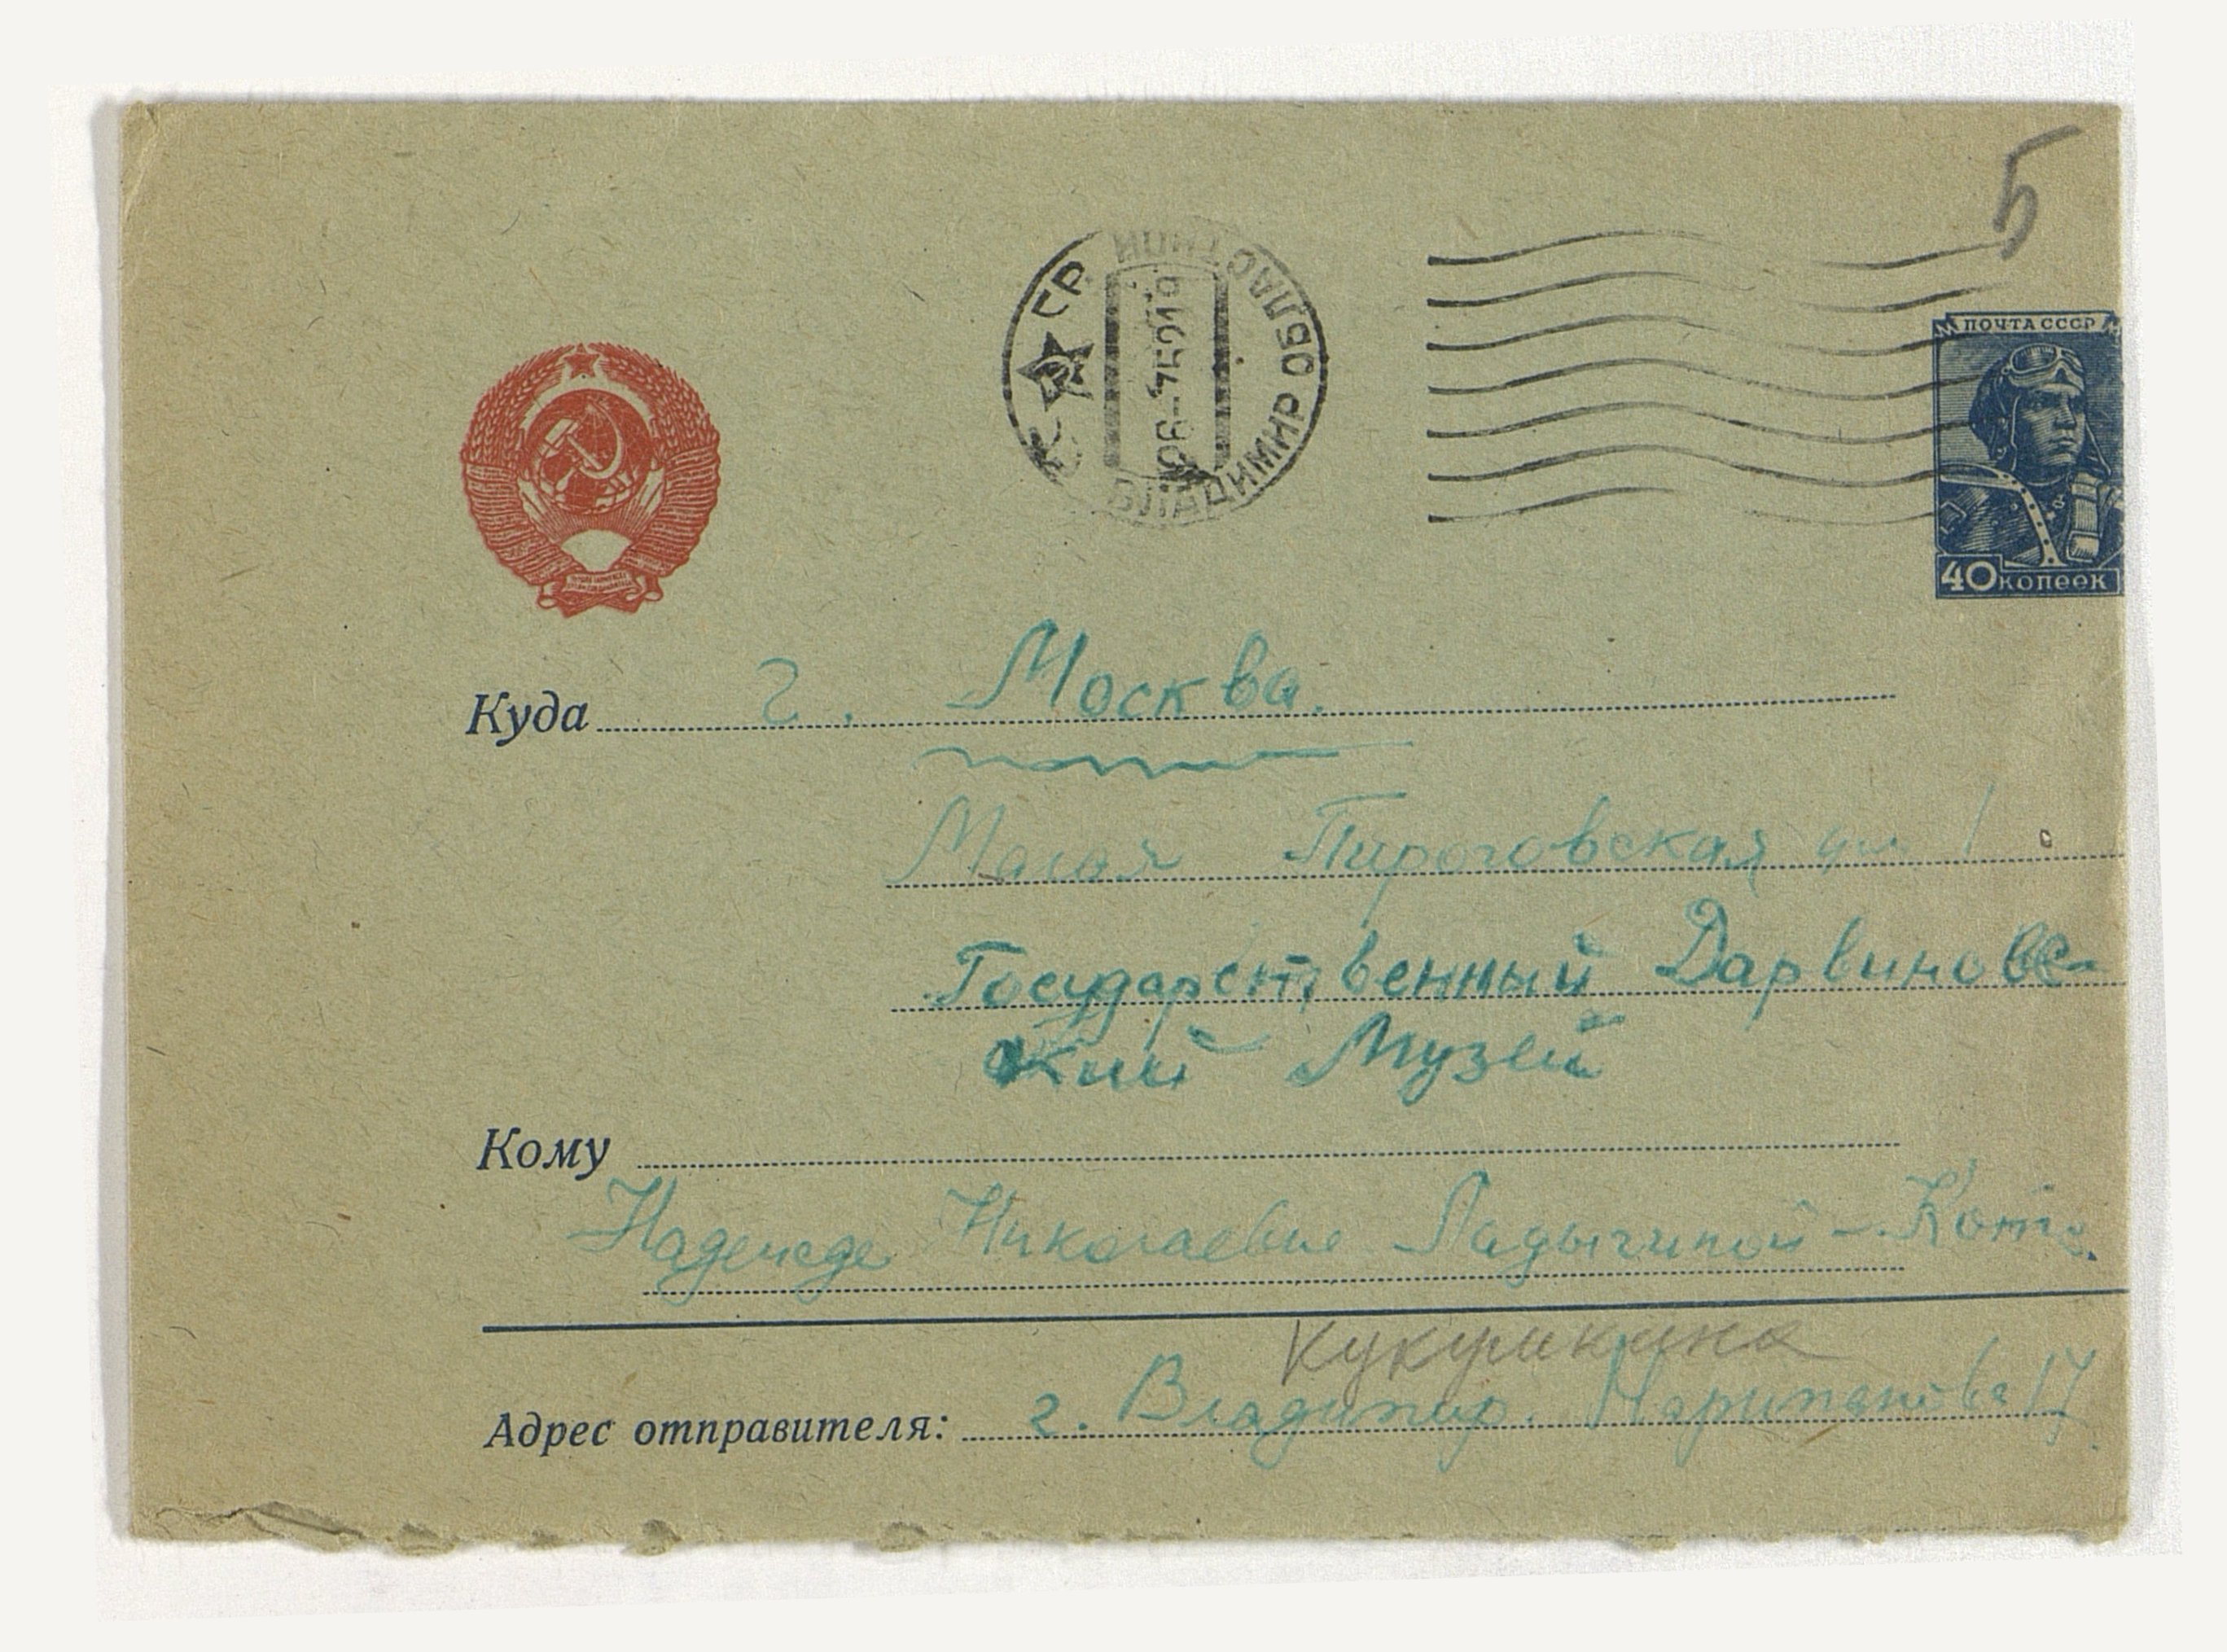 5
СССР
ВЛАДИМИР ОБЛАСТНОЙ
ПОЧТА СССР
40 копеек
Куда г. Москва.
Малая Пироговская ул 1
Государственный Дарвиновс-
кий Музей
Кому
Надежде Николаевне Ладыгиной-Котс.
Адрес отправителя: г. Владимир.